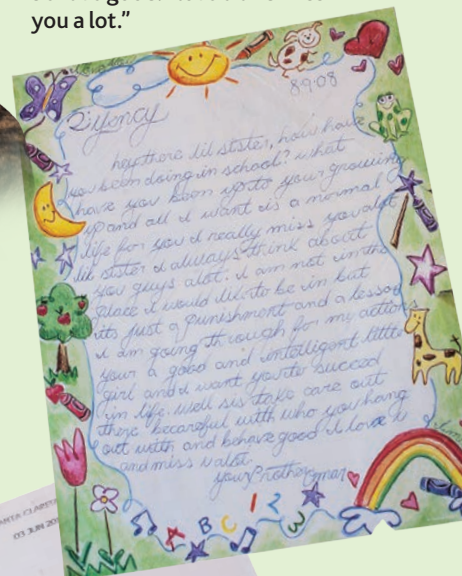 you a lot.”
8-9-08
hey there lil sister, how have
you been doing in school? what
have you been up to your growing
up and all I want is a normal
life for you I really miss you alot
lil sister I always think about
you guys alot. I am not in the
place I would like to be in but
its just a punishment and a lesson
I am going through for my actions
your a good and intelligent little
girl and I want you to succed
in life. well sis take care out
there becareful with who you hang
out with and behave good I love u
and miss u alot.
your Brother
A B C 1 2 3
03 JUN